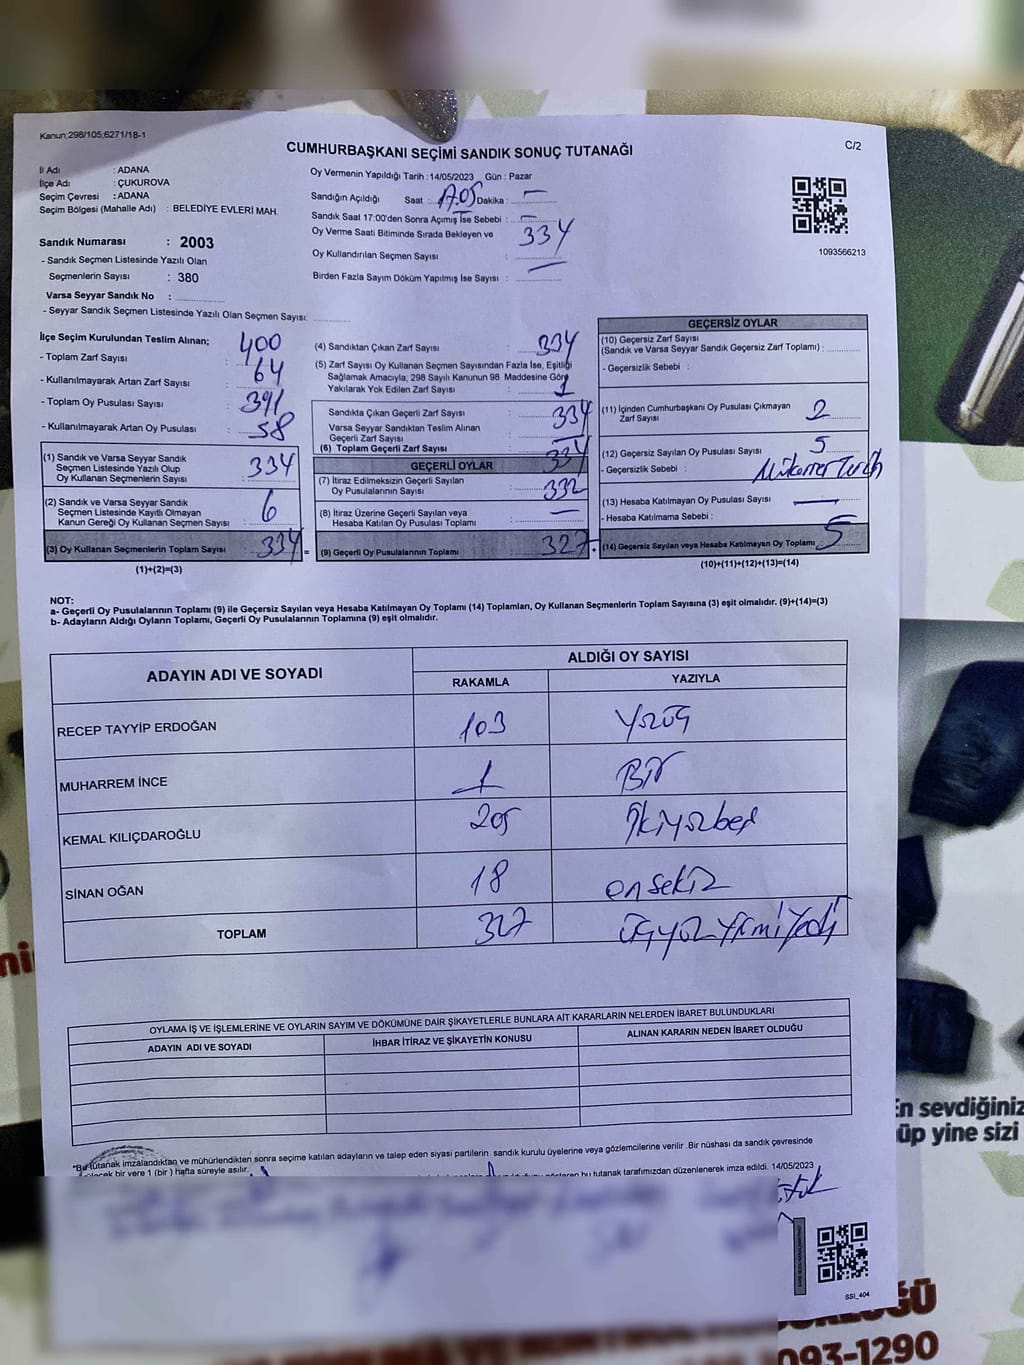 Kanun;298/105,6271/18-1
C/2
CUMHURBAŞKANI SEÇİMİ SANDIK SONUÇ TUTANAĞI
İl Adı : ADANA
İlçe Adı : ÇUKUROVA
Seçim Çevresi : ADANA
Seçim Bölgesi (Mahalle Adı) : BELEDİYE EVLERİ MAH.
Sandık Numarası : 2003
- Sandık Seçmen Listesinde Yazılı Olan
Seçmenlerin Sayısı : 380
Varsa Seyyar Sandık No : ..............
- Seyyar Sandık Seçmen Listesinde Yazılı Olan Seçmen Sayısı: ..............
Oy Vermenin Yapıldığı Tarih : 14/05/2023 Gün : Pazar
Sandığın Açıldığı Saat : 17.05 Dakika : —
Sandık Saat 17:00'den Sonra Açımış İse Sebebi : —
Oy Verme Saati Bitiminde Sırada Bekleyen ve
Oy Kullandırılan Seçmen Sayısı : 334
Birden Fazla Sayım Döküm Yapılmış İse Sayısı : —
1093566213
İlçe Seçim Kurulundan Teslim Alınan;
- Toplam Zarf Sayısı : 400
- Kullanılmayarak Artan Zarf Sayısı : 64
- Toplam Oy Pusulası Sayısı : 391
- Kullanılmayarak Artan Oy Pusulası : 58
(1) Sandık ve Varsa Seyyar Sandık
Seçmen Listesinde Yazılı Olup
Oy Kullanan Seçmenlerin Sayısı : 334
(2) Sandık ve Varsa Seyyar Sandık
Seçmen Listesinde Kayıtlı Olmayan
Kanun Gereği Oy Kullanan Seçmen Sayısı : 6
(3) Oy Kullanan Seçmenlerin Toplam Sayısı : 334 =
(1)+(2)=(3)
(4) Sandıktan Çıkan Zarf Sayısı : 334
(5) Zarf Sayısı Oy Kullanan Seçmen Sayısından Fazla İse, Eşitliği
Sağlamak Amacıyla, 298 Sayılı Kanunun 98. Maddesine Göre
Yakılarak Yok Edilen Zarf Sayısı : 1
Sandıkta Çıkan Geçerli Zarf Sayısı : 334
Varsa Seyyar Sandıktan Teslim Alınan
Geçerli Zarf Sayısı : —
(6) Toplam Geçerli Zarf Sayısı : 334
GEÇERLİ OYLAR
(7) İtiraz Edilmeksizin Geçerli Sayılan
Oy Pusulalarının Sayısı : 332
(8) İtiraz Üzerine Geçerli Sayılan veya
Hesaba Katılan Oy Pusulası Toplamı : —
(9) Geçerli Oy Pusulalarının Toplamı 327 +
GEÇERSİZ OYLAR
(10) Geçersiz Zarf Sayısı
(Sandık ve Varsa Seyyar Sandık Geçersiz Zarf Toplamı) : ..............
- Geçersizlik Sebebi :
(11) İçinden Cumhurbaşkanı Oy Pusulası Çıkmayan
Zarf Sayısı : 2
(12) Geçersiz Sayılan Oy Pusulası Sayısı : 5
- Geçersizlik Sebebi : Mükerrer Tercih
(13) Hesaba Katılmayan Oy Pusulası Sayısı : —
- Hesaba Katılmama Sebebi :
(14) Geçersiz Sayılan veya Hesaba Katılmayan Oy Toplamı : 5
(10)+(11)+(12)+(13)=(14)
NOT:
a- Geçerli Oy Pusulalarının Toplamı (9) ile Geçersiz Sayılan veya Hesaba Katılmayan Oy Toplamı (14) Toplamları, Oy Kullanan Seçmenlerin Toplam Sayısına (3) eşit olmalıdır. (9)+(14)=(3)
b- Adayların Aldığı Oyların Toplamı, Geçerli Oy Pusulalarının Toplamına (9) eşit olmalıdır.
ADAYIN ADI VE SOYADI
ALDIĞI OY SAYISI
RAKAMLA YAZIYLA
RECEP TAYYİP ERDOĞAN 103 yüzüç
MUHARREM İNCE 1 Bir
KEMAL KILIÇDAROĞLU 205 ikiyüzbeş
SİNAN OĞAN 18 onsekiz
TOPLAM 327 üçyüzyirmiyedi
OYLAMA İŞ VE İŞLEMLERİNE VE OYLARIN SAYIM VE DÖKÜMÜNE DAİR ŞİKAYETLERLE BUNLARA AİT KARARLARIN NELERDEN İBARET BULUNDUKLARI
ADAYIN ADI VE SOYADI İHBAR İTİRAZ VE ŞİKAYETİN KONUSU ALINAN KARARIN NEDEN İBARET OLDUĞU
*Bu tutanak imzalandıktan ve mühürlendikten sonra seçime katılan adayların ve talep eden siyasi partilerin sandık kurulu üyelerine veya gözlemcilerine verilir .Bir nüshası da sandık çevresinde
bir yere 1 (bir ) hafta süreyle asılır.
bu tutanak tarafımızdan düzenlenerek imza edildi. 14/05/2023
SSI_404
En sevdiğiniz
üp yine sizi
093-1290